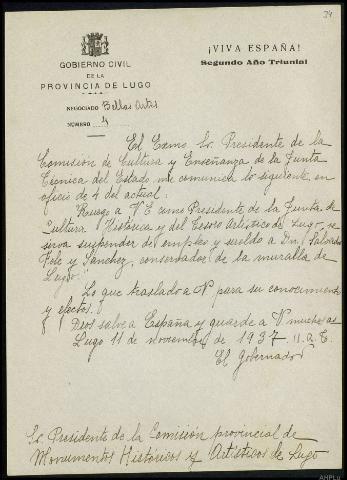 34
GOBIERNO CIVIL
DE LA
PROVINCIA DE LUGO
¡VIVA ESPAÑA!
Segundo Año Triunfal
NEGOCIADO Bellas Artes
NÚMERO 4
El Excmo Sr. Presidente de la
Comisión de Cultura y Enseñanza de la Junta
Técnica del Estado me comunica lo siguiente en
oficio de 4 del actual.
"Ruego a V E como Presidente de la Junta de
Cultura Histórica y del Tesoro Artístico de Lugo, se
sirva suspender de empleo y sueldo a Dn Salvador
y Sanchez, conservador de la muralla de
Lugo."
Lo que traslado a V para su conocimiento
y efectos.
Dios salve a España y guarde a V muchos as
Lugo 11 de noviembre de 1937 - II. a. T.
El Gobernador
Sr. Presidente de la Comisión provincial de
Monumentos Históricos y Artísticos de Lugo
AHPLu